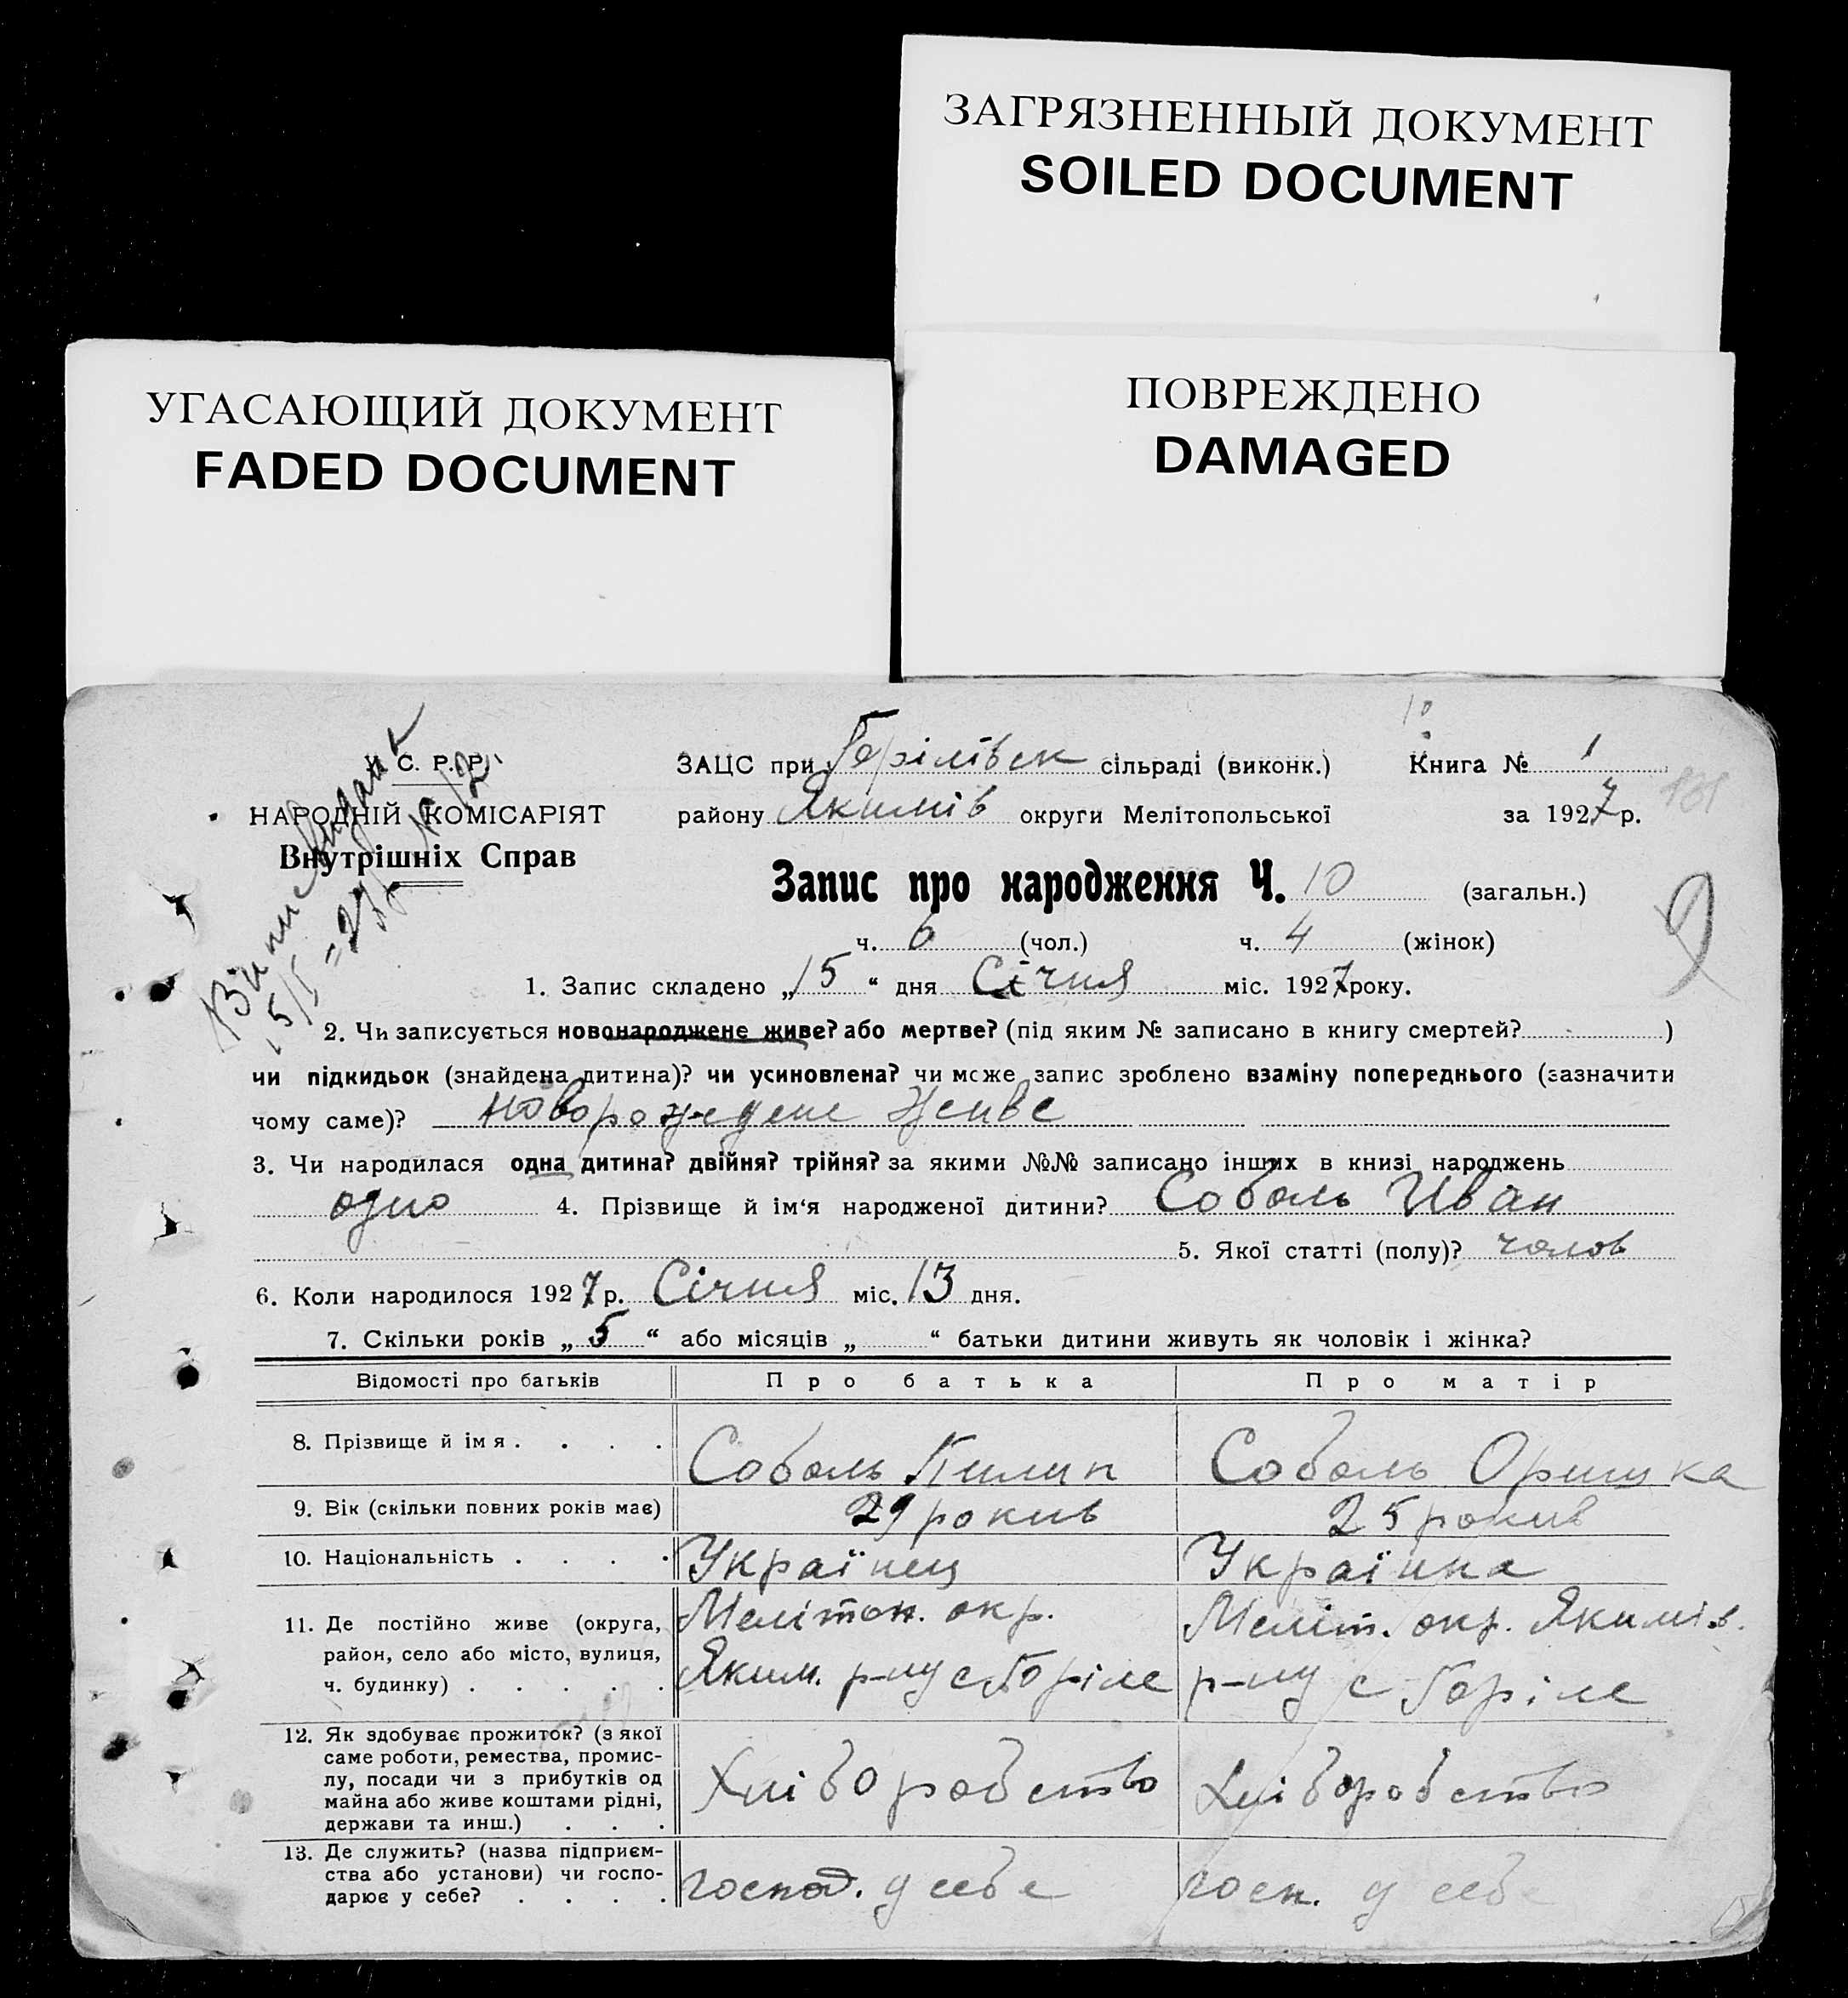 ЗАГРЯЗНЕННЫЙ ДОКУМЕНТ
SOILED DOCUMENT
УГАСАЮЩИЙ ДОКУМЕНТ
FADED DOCUMENT
ПОВРЕЖДЕНО
DAMAGED
У. С. Р. Р.
НАРОДНІЙ КОМІСАРІЯТ
Внутрішніх Справ
ЗАЦС при Горілівск сільраді (виконк.) Книга № 1
району Якимів округи Мелітопольської за 1927 р.
Запис про народження Ч. 10 (загальн.)
9
ч. 6 (чол.) ч. 4 (жінок)
1. Запис складено „15“ дня Січня міс. 1927 року.
2. Чи записується новонароджене живе? або мертве? (під яким № записано в книгу смертей? )
чи підкидьок (знайдена дитина)? чи усиновлена? чи може запис зроблено взаміну попереднього (зазначити
чому саме)? Новорождене живе
3. Чи народилася одна дитина? двійня? трійня? за якими №№ записано інших в книзі народжень
одно 4. Прізвище й ім‘я народженої дитини? Соболь Иван
5. Якої статті (полу)? чолов
6. Коли народилося 1927 р. Січня міс. 13 дня.
7. Скільки років „5“ або місяців „ “ батьки дитини живуть як чоловік і жінка?
Відомості про батьків Про батька Про матір
8. Прізвище й імя . . . . Соболь Пилип Соболь Оришка
9. Вік (скільки повних років має) 29 рокив 25 рокив
10. Національність . . . . Українец Українка
11. Де постійно живе (округа, район, село або місто, вулиця, ч. будинку) . . . . .
Мелітоп. окр. Меліт. окр. Якимів.
Яким. р-ну с Горіле р-ну с Горіле
12. Як здобуває прожиток? (з якої
саме роботи, ремества, промис-
лу, посади чи з прибутків од
майна або живе коштами рідні,
держави та инш.) . . .
Хліборобство Хліборобство
13. Де служить? (назва підприєм-
ства або установи) чи госпо-
дарює у себе? . . . .
господ. у себе госп. у себе